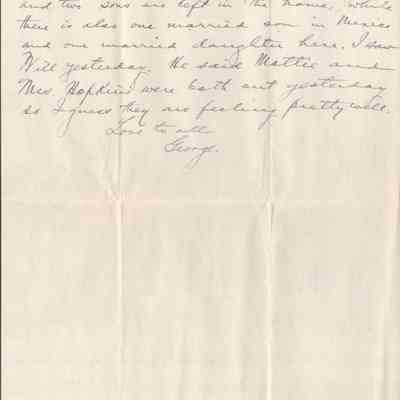 and two sons are left in the home, while
there is also one married son in Mexico
and one married daughter here. I saw
Will yesterday. He said Mattie and
Mrs. Hopkins were both out yesterday
so I guess they are feeling pretty well.
Love to all
George.